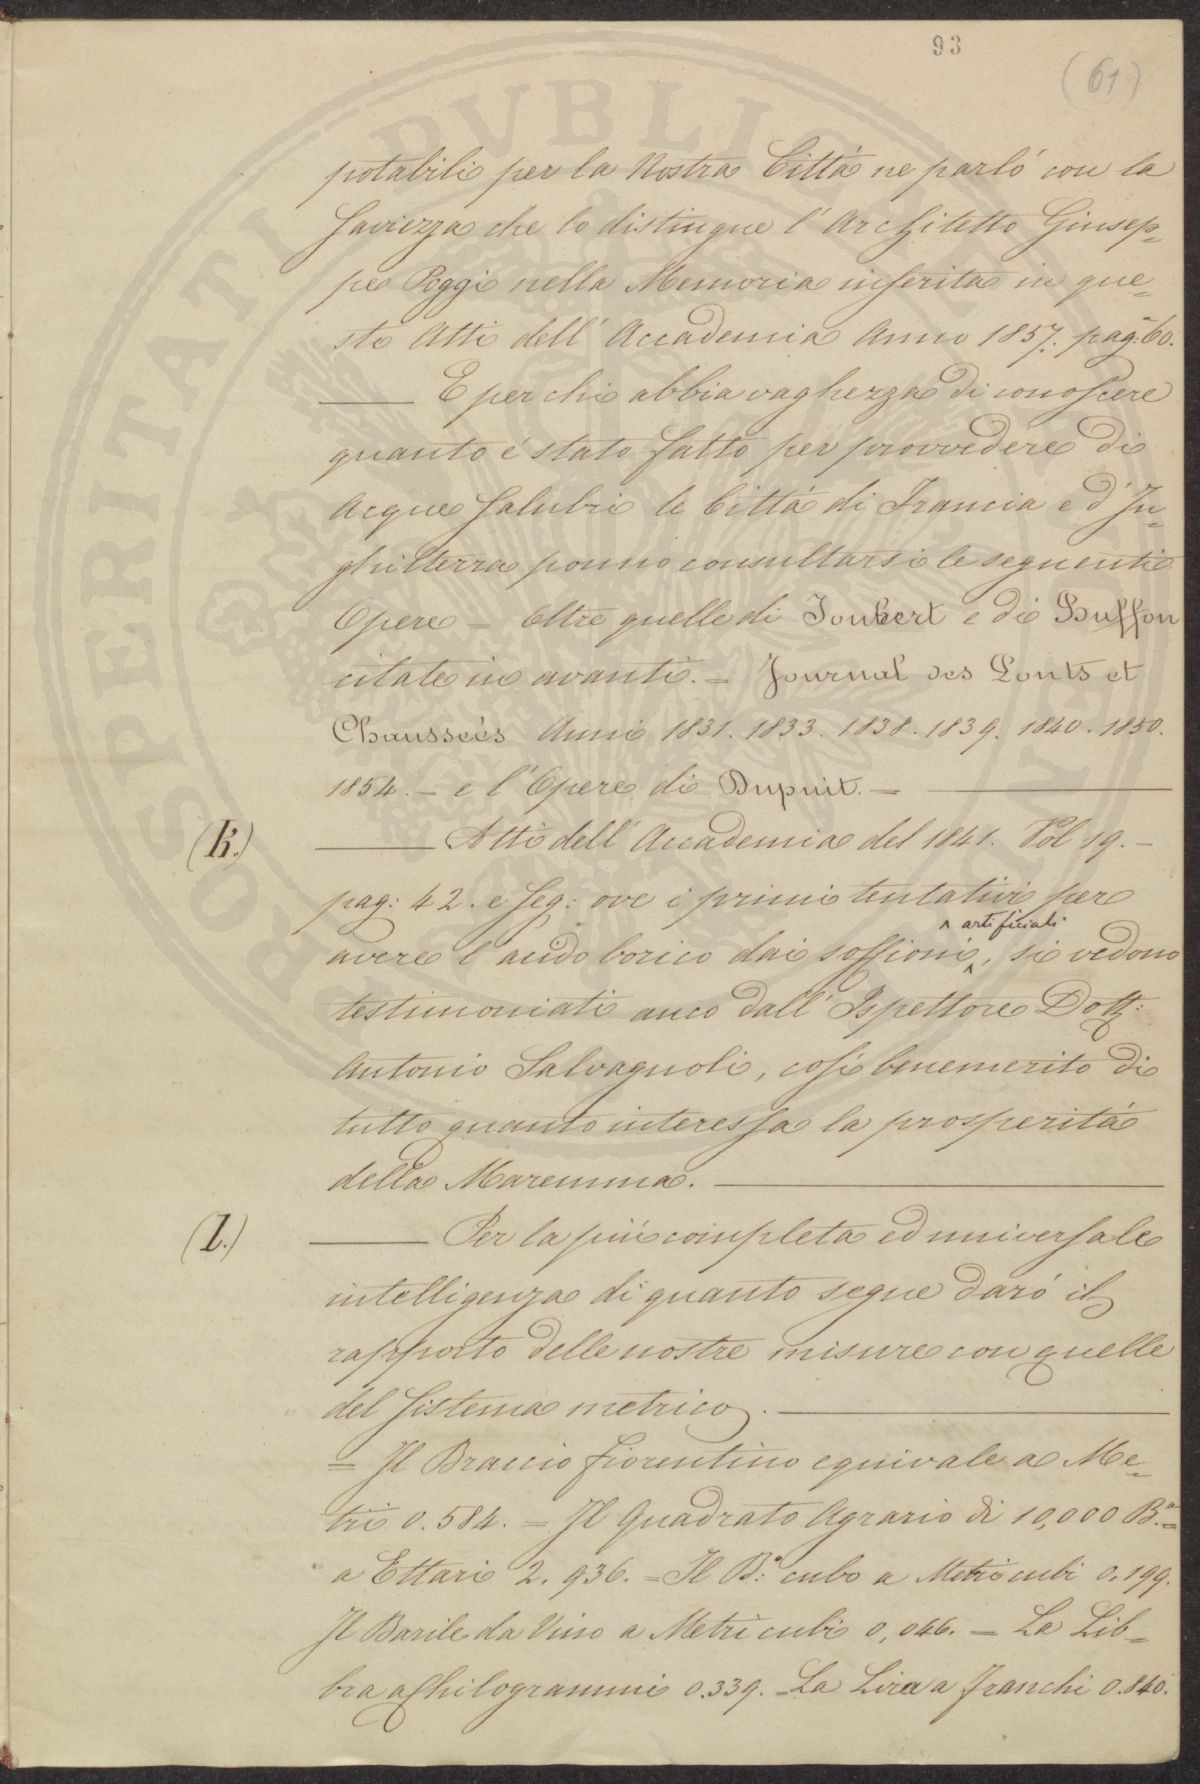 93
(61)
PROSPERITATI PVBLICAE
potabili per la Nostra Città ne parlò con la
saviezza che lo distingue l'Architetto Giusep=
pe Poggi nella Memoria inserita in que=
sti Atti dell'Accademia Anno 1857. pag: 60.
E per chi abbia vaghezza di conoscere
quanto è stato fatto per provvedere di
Acque salubri le Città di Francia e d'In=
ghilterra ponno consultarsi le seguenti
Opere = Oltre quelle di Joubert e di Buffon
citate in avanti. = Journal des Ponts et
Chausseès Anni 1831. 1833. 1838. 1839. 1840. 1850.
1854. = e l'Opere di Dupuit. =
(k.) Atti dell'Accademia del 1841. Vol 19. =
pag: 42. e seg: ove i primi tentativi per
avere l'acido borico dai soffioni artificiali, si vedono
testimoniati anco dall'Ispettore Dott:
Antonio Salvagnoli, così benemerito di
tutto quanto interessa la prosperità
della Maremma.
(l.) Per la più completa ed universale
intelligenza di quanto segue darò il
rapporto delle nostre misure con quelle
del sistema metrico.
= Il Braccio fiorentino equivale a Me=
tri 0.584. = Il Quadrato Agrario di 10,000 B.ª=
a Ettari 2.936. = Il B:º cubo a Metri cubi 0.199.
Il Barile da Vino a Metri cubi 0,046. = La Lib=
bra a Chilogrammi 0.339. = La Lira a Franchi 0.840.